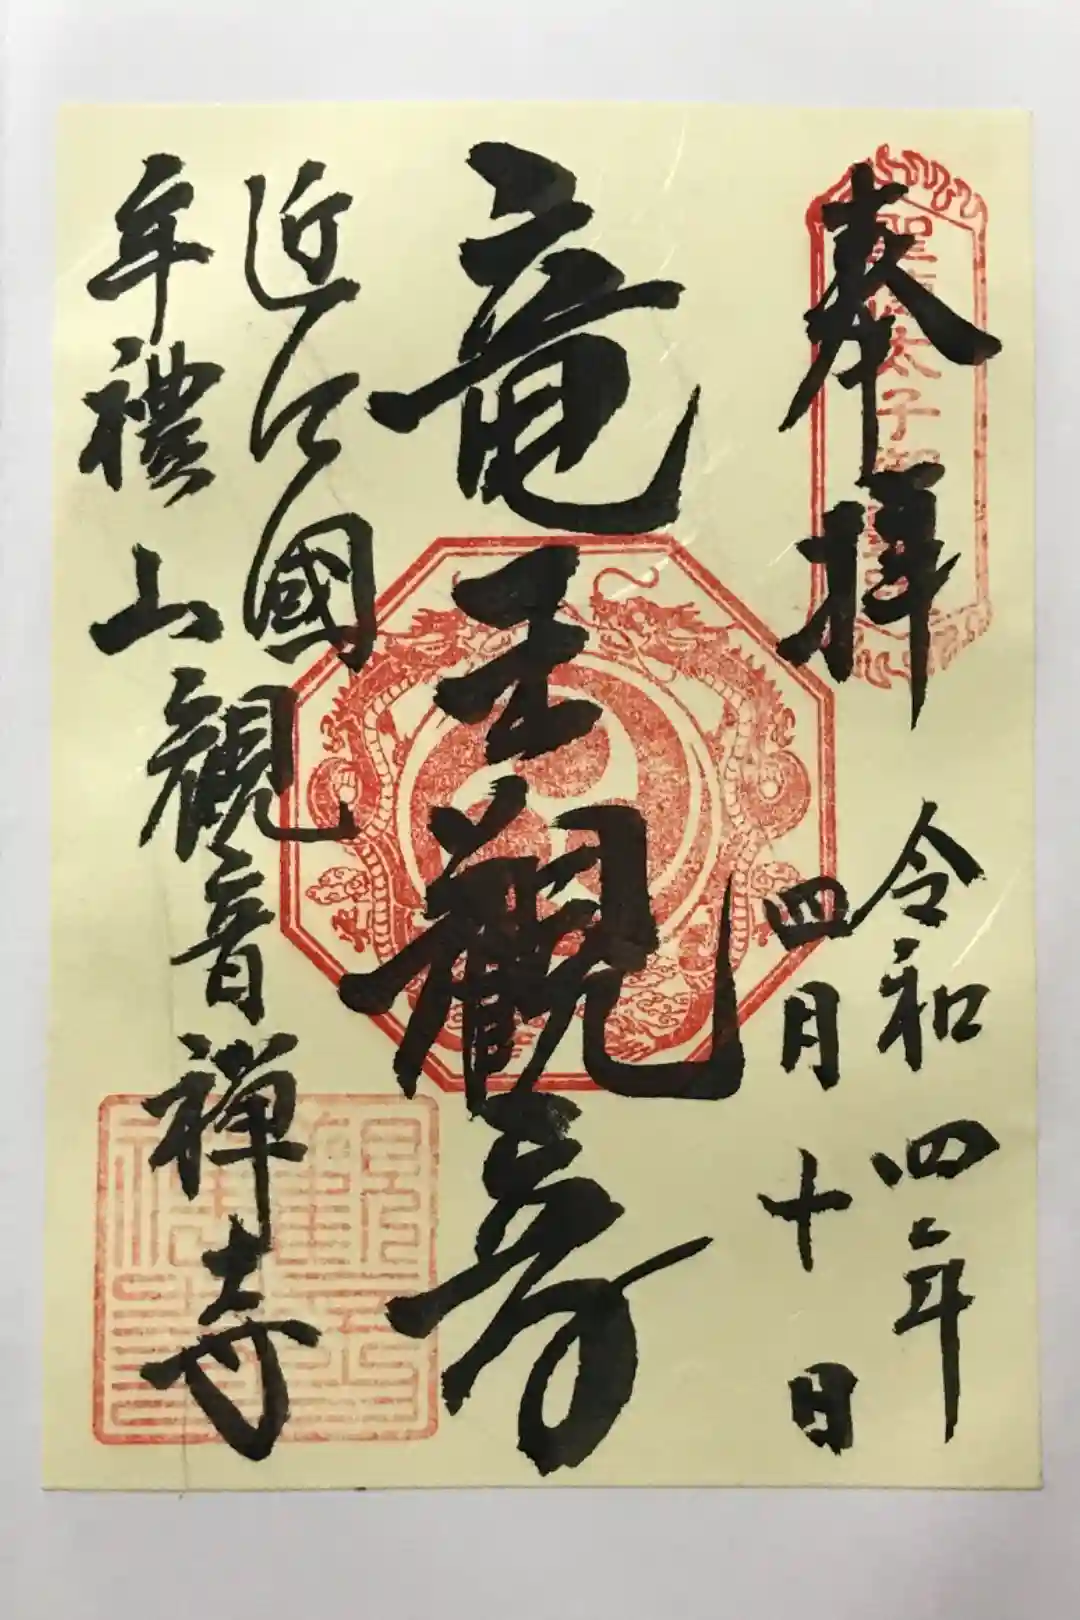 奉拝
令和四年
四月十日
竜王觀音
近江國
年禮山觀音禅寺